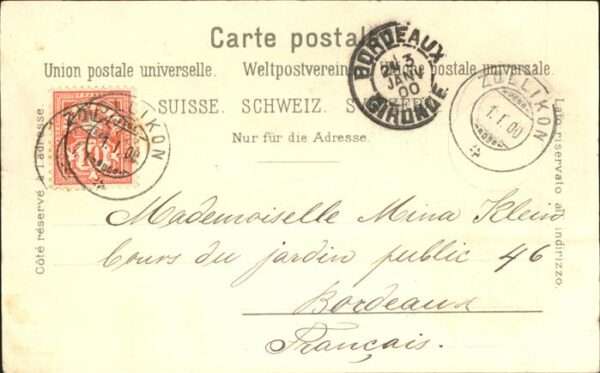 Carte postale.
Union postale universelle. Weltpostverein. Unione postale universale.
SUISSE. SCHWEIZ. SVIZZERA.
Nur für die Adresse.
Côté réservé à l'adresse.
Lato riservato all' indirizzo.
BORDEAUX
3
JANV
00
GIRONDE
ZOLLIKON
1.I.00
ZOLLIKON
1.I.00
10
Mademoiselle Mina Klein
Cours du jardin public 46
Bordeaux
Français.